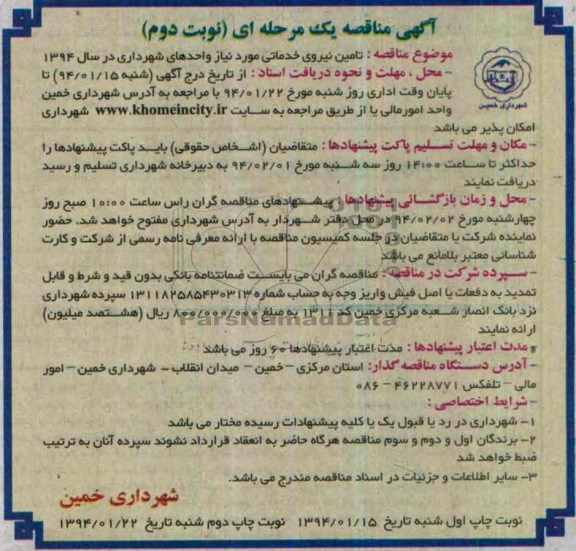 آگهی مناقصه یک مرحله ای (نوبت دوم)
موضوع مناقصه : تامین نیروی خدماتی مورد نیاز واحدهای شهرداری در سال ۱۳۹۴
- محل ، مهلت و نحوه دریافت اسناد : از تاریخ درج آگهی (شنبه ۹۴/۰۱/۱۵) تا
پایان وقت اداری روز شنبه مورخ ۹۴/۰۱/۲۲ با مراجعه به آدرس شهرداری خمین
واحد امورمالی یا از طریق مراجعه به سایت www.khomeincity.ir شهرداری
شهرداری خمین
امکان پذیر می باشد
- مکان و مهلت تسلیم پاکت پیشنهادها : متقاضیان (اشخاص حقوقی) باید پاکت پیشنهادها را
حداکثر تا ساعت ۱۴:۰۰ روز سه شنبه مورخ ۹۴/۰۲/۰۱ به دبیرخانه شهرداری تسلیم و رسید
دریافت نمایند
- محل و زمان بازگشائی پیشنهادها : پیشنهادهای مناقصه گران راس ساعت ۱۰:۰۰ صبح روز
چهارشنبه مورخ ۹۴/۰۲/۰۲ در محل دفتر شهردار به آدرس شهرداری مفتوح خواهد شد. حضور
نماینده شرکت یا متقاضیان در جلسه کمیسیون مناقصه با ارائه معرفی نامه رسمی از شرکت و کارت
شناسائی معتبر بلامانع می باشد
- سپرده شرکت در مناقصه : مناقصه گران می بایست ضمانتنامه بانکی بدون قید و شرط و قابل
تمدید به دفعات یا اصل فیش واریز وجه به حساب شماره ۱۳۱۱۸۲۵۸۵۴۳۰۳۱۳ سپرده شهرداری
نزد بانک انصار شعبه مرکزی خمین کد ۱۳۱۱ به مبلغ ۸۰۰/۰۰۰/۰۰۰ ریال (هشتصد میلیون)
ParsNamadData
ارائه نمایند
- مدت اعتبار پیشنهادها : مدت اعتبار پیشنهادها ۶۰ روز می باشد
- آدرس دستگاه مناقصه گذار: استان مرکزی – خمین – میدان انقلاب – شهرداری خمین – امور
مالی – تلفکس ۴۶۲۲۸۷۷۱ – ۰۸۶
- شرایط اختصاصی :
۱- شهرداری در رد یا قبول یک یا کلیه پیشنهادات رسیده مختار می باشد
۲- برندگان اول و دوم و سوم مناقصه هرگاه حاضر به انعقاد قرارداد نشوند سپرده آنان به ترتیب
ضبط خواهد شد
۳- سایر اطلاعات و جزئیات در اسناد مناقصه مندرج می باشد.
شهرداری خمین
نوبت چاپ اول شنبه تاریخ ۱۳۹۴/۰۱/۱۵ نوبت چاپ دوم شنبه تاریخ ۱۳۹۴/۰۱/۲۲